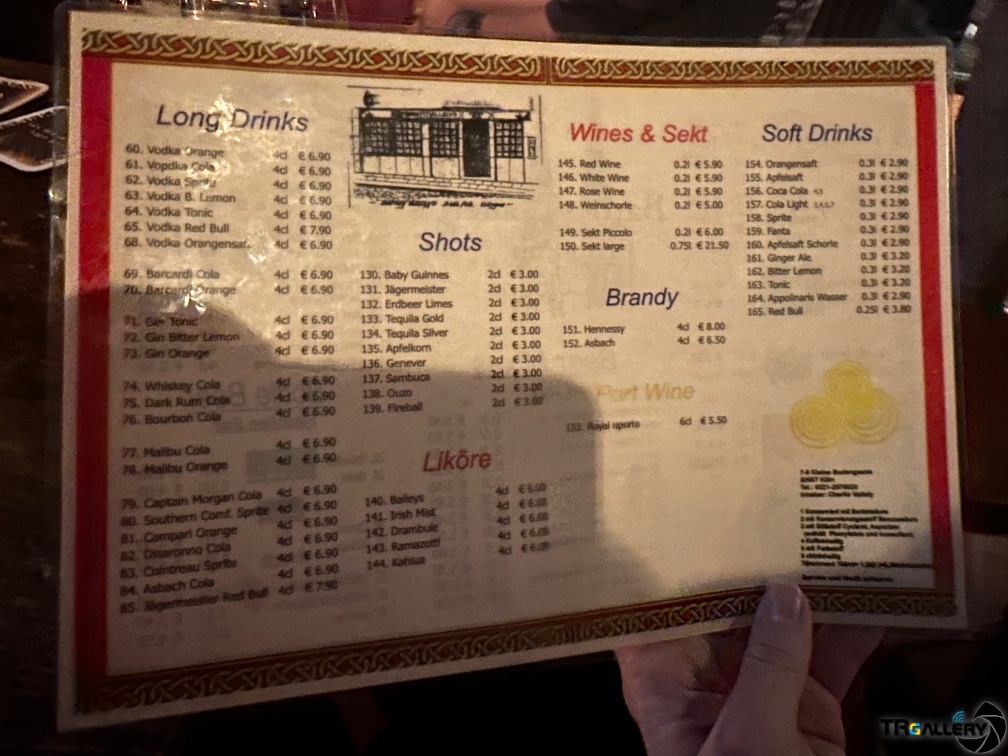 Long Drinks
60. Vodka Orange 4cl € 6.90
61. Vopdka Cola 4cl € 6.90
62. Vodka Sprite 4cl € 6.90
63. Vodka B. Lemon 4cl € 6.90
64. Vodka Tonic 4cl € 6.90
65. Vodka Red Bull 4cl € 7.90
68. Vodka Orangensaft 4cl € 6.90
69. Barcardi Cola 4cl € 6.90
70. Barcardi Orange 4cl € 6.90
71. Gin Tonic 4cl € 6.90
72. Gin Bitter Lemon 4cl € 6.90
73. Gin Orange 4cl € 6.90
74. Whiskey Cola 4cl € 6.90
75. Dark Rum Cola 4cl € 6.90
76. Bourbon Cola 4cl € 6.90
77. Malibu Cola 4cl € 6.90
78. Malibu Orange 4cl € 6.90
79. Captain Morgan Cola 4cl € 6.90
80. Southern Comf. Sprite 4cl € 6.90
81. Campari Orange 4cl € 6.90
82. Disaronno Cola 4cl € 6.90
83. Cointreau Sprite 4cl € 6.90
84. Asbach Cola 4cl € 6.90
85. Jägermeister Red Bull 4cl € 7.90
Shots
130. Baby Guinnes 2cl € 3.00
131. Jägermeister 2cl € 3.00
132. Erdbeer Limes 2cl € 3.00
133. Tequila Gold 2cl € 3.00
134. Tequila Silver 2cl € 3.00
135. Apfelkorn 2cl € 3.00
136. Genever 2cl € 3.00
137. Sambuca 2cl € 3.00
138. Ouzo 2cl € 3.00
139. Fireball 2cl € 3.00
Liköre
140. Baileys 4cl € 6.00
141. Irish Mist 4cl € 6.00
142. Drambuie 4cl € 6.00
143. Ramazotti 4cl € 6.00
144. Kahlua 4cl € 6.00
Wines & Sekt
145. Red Wine 0.2l € 5.90
146. White Wine 0.2l € 5.90
147. Rose Wine 0.2l € 5.90
148. Weinschorle 0.2l € 5.00
149. Sekt Piccolo 0.2l € 6.00
150. Sekt large 0.75l € 21.50
Brandy
151. Hennessy 4cl € 8.00
152. Asbach 4cl € 6.50
Port Wine
153. Royal oporto 6cl € 5.50
Soft Drinks
154. Orangensaft 0.3l € 2.90
155. Apfelsaft 0.3l € 2.90
156. Coca Cola 0.3l € 2.90
157. Cola Light 0.3l € 2.90
158. Sprite 0.3l € 2.90
159. Fanta 0.3l € 2.90
160. Apfelsaft Schorle 0.3l € 2.90
161. Ginger Ale 0.3l € 3.20
162. Bitter Lemon 0.3l € 3.20
163. Tonic 0.3l € 3.20
164. Appolinaris Wasser 0.3l € 2.90
165. Red Bull 0.25l € 3.80
7-9 Kleine Budengasse
50667 Köln
TRGALLERY